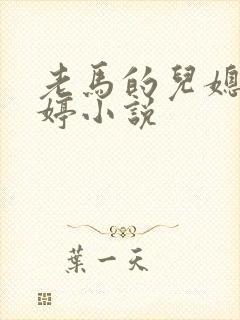 老馬的兒媳
婷小說
葉一天